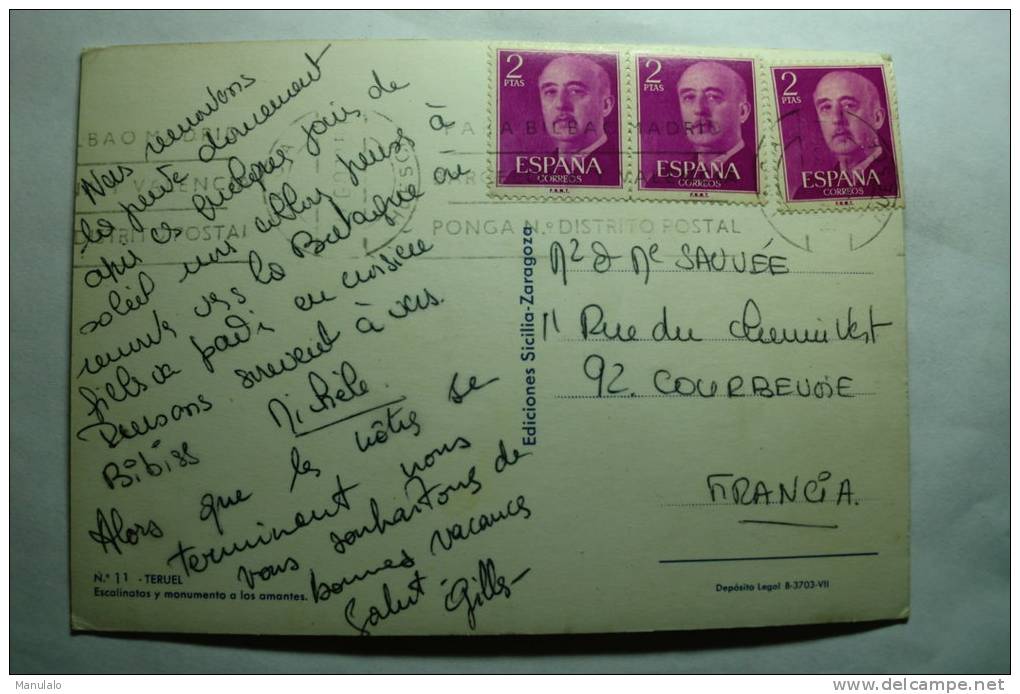 Nous remontons
la pente doucement
après ces quelques jours de
soleil nous allons penser à
remonter vers la Bretagne ou
fille va partir en croisière
Pensons souvent à vous.
Bibises Michèle.
Alors que les nôtres se
terminent nous
vous souhaitons de
bonnes vacances
Salut Gilles
N.º 11 - TERUEL
Escalinatas y monumento a los amantes.
Ediciones Sicilia-Zaragoza
2 PTAS
ESPAÑA
CORREOS
F.N.M.T.
2 PTAS
ESPAÑA
CORREOS
F.N.M.T.
2 PTAS
ESPAÑA
CORREOS
F.N.M.T.
BILBAO MADRID
VALENCIA
DISTRITO POSTAL
PARA BILBAO MADRID
PONGA N.º DISTRITO POSTAL
Mr & Me SAUVÉE
11 Rue du Chemin Vert
92. COURBEVOIE
FRANCIA.
Depósito Legal B-3703-VII
Manulalo
delcampe.net